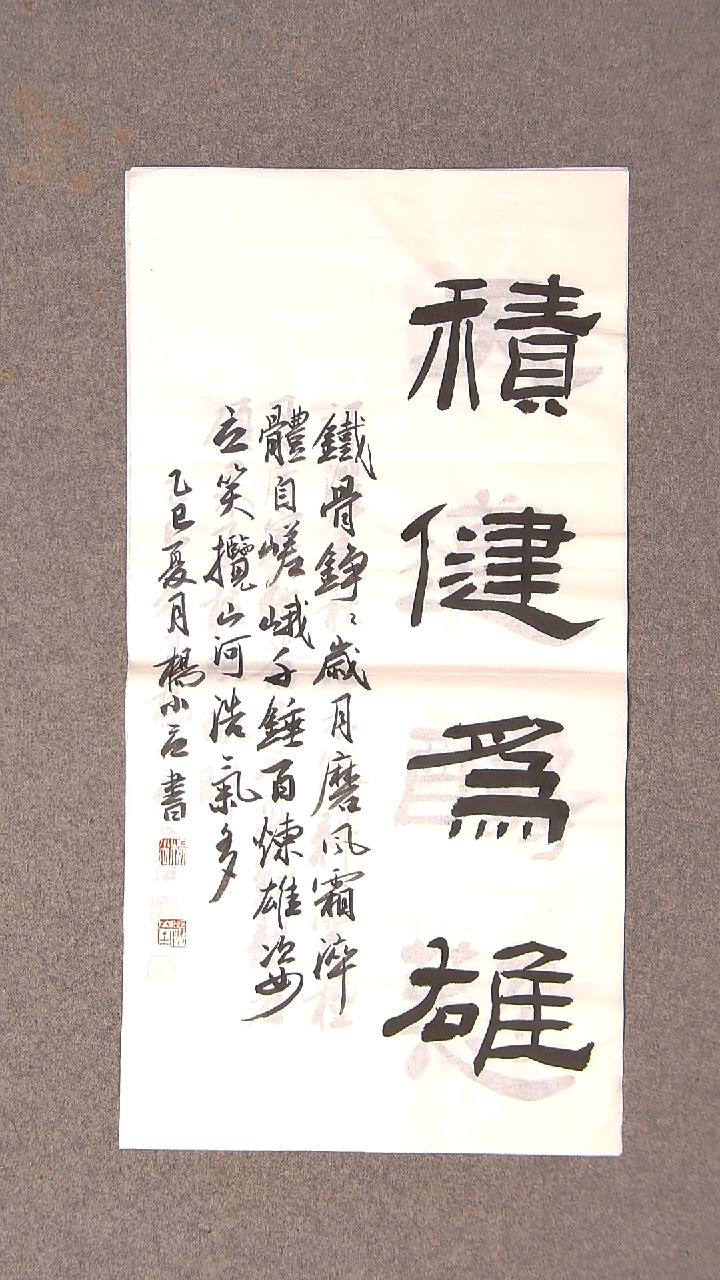 積健爲雄
鐵骨錚々歲月磨風霜淬
體自嵯峨千錘百煉雄姿
立笑攬山河浩氣多
乙巳夏月楊小立書